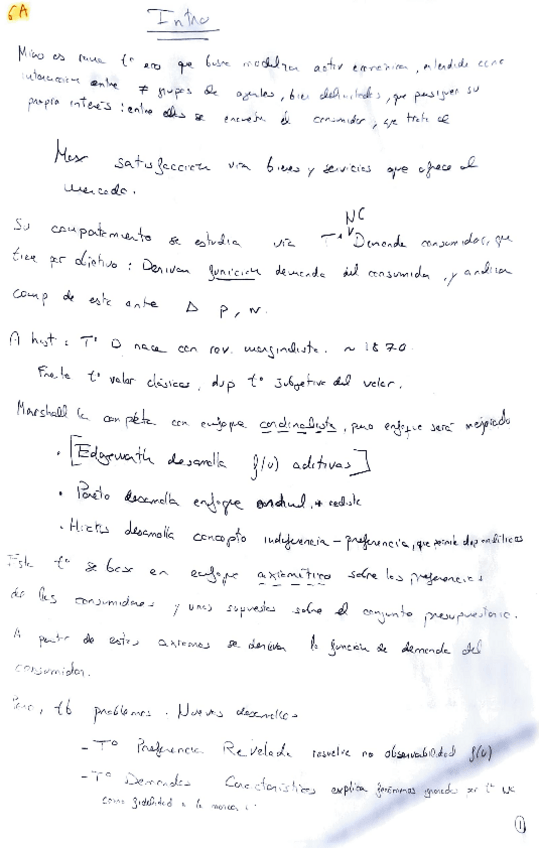 6A
Intro
Micro es rama tº eco que busca modelizar activ económica, entendida como
interacción entre ≠ grupos de agentes, bien delimitados, que persiguen su
propio interés: entre ellos se encuentra el consumidor, que trata de
Max satisfacción vía bienes y servicios que ofrece el
mercado.
NC
Su comportamiento se estudia vía Tª Demanda consumidor, que
tiene por objetivo: Derivar función demanda del consumidor, y analizar
comp de este ante Δ P, N.
A hist: Tª D nace con rev. marginalista. ~ 1870.
Frente tº valor clásicos, dsp tº subjetiva del valor.
Marshall la completa con enfoque cardinalista, pero enfoque será mejorado
· [Edgeworth desarrolla f(u) aditivas]
· Pareto desarrolla enfoque
· Hicks desarrolla concepto indiferencia - preferencia, que
Esta tº se basa en enfoque axiomático sobre las preferencias
de los consumidores y unos supuestos sobre el conjunto presupuestario.
A partir de estos axiomas se derivan la función de demanda del
consumidor.
Pero, tb problemas. Nuevos desarrollos
- Tº Preferencia Revelada resuelve no observabilidad f(u)
- Tº Demandas Características explica fenómenos por tª NC
como fidelidad a la marca.
1